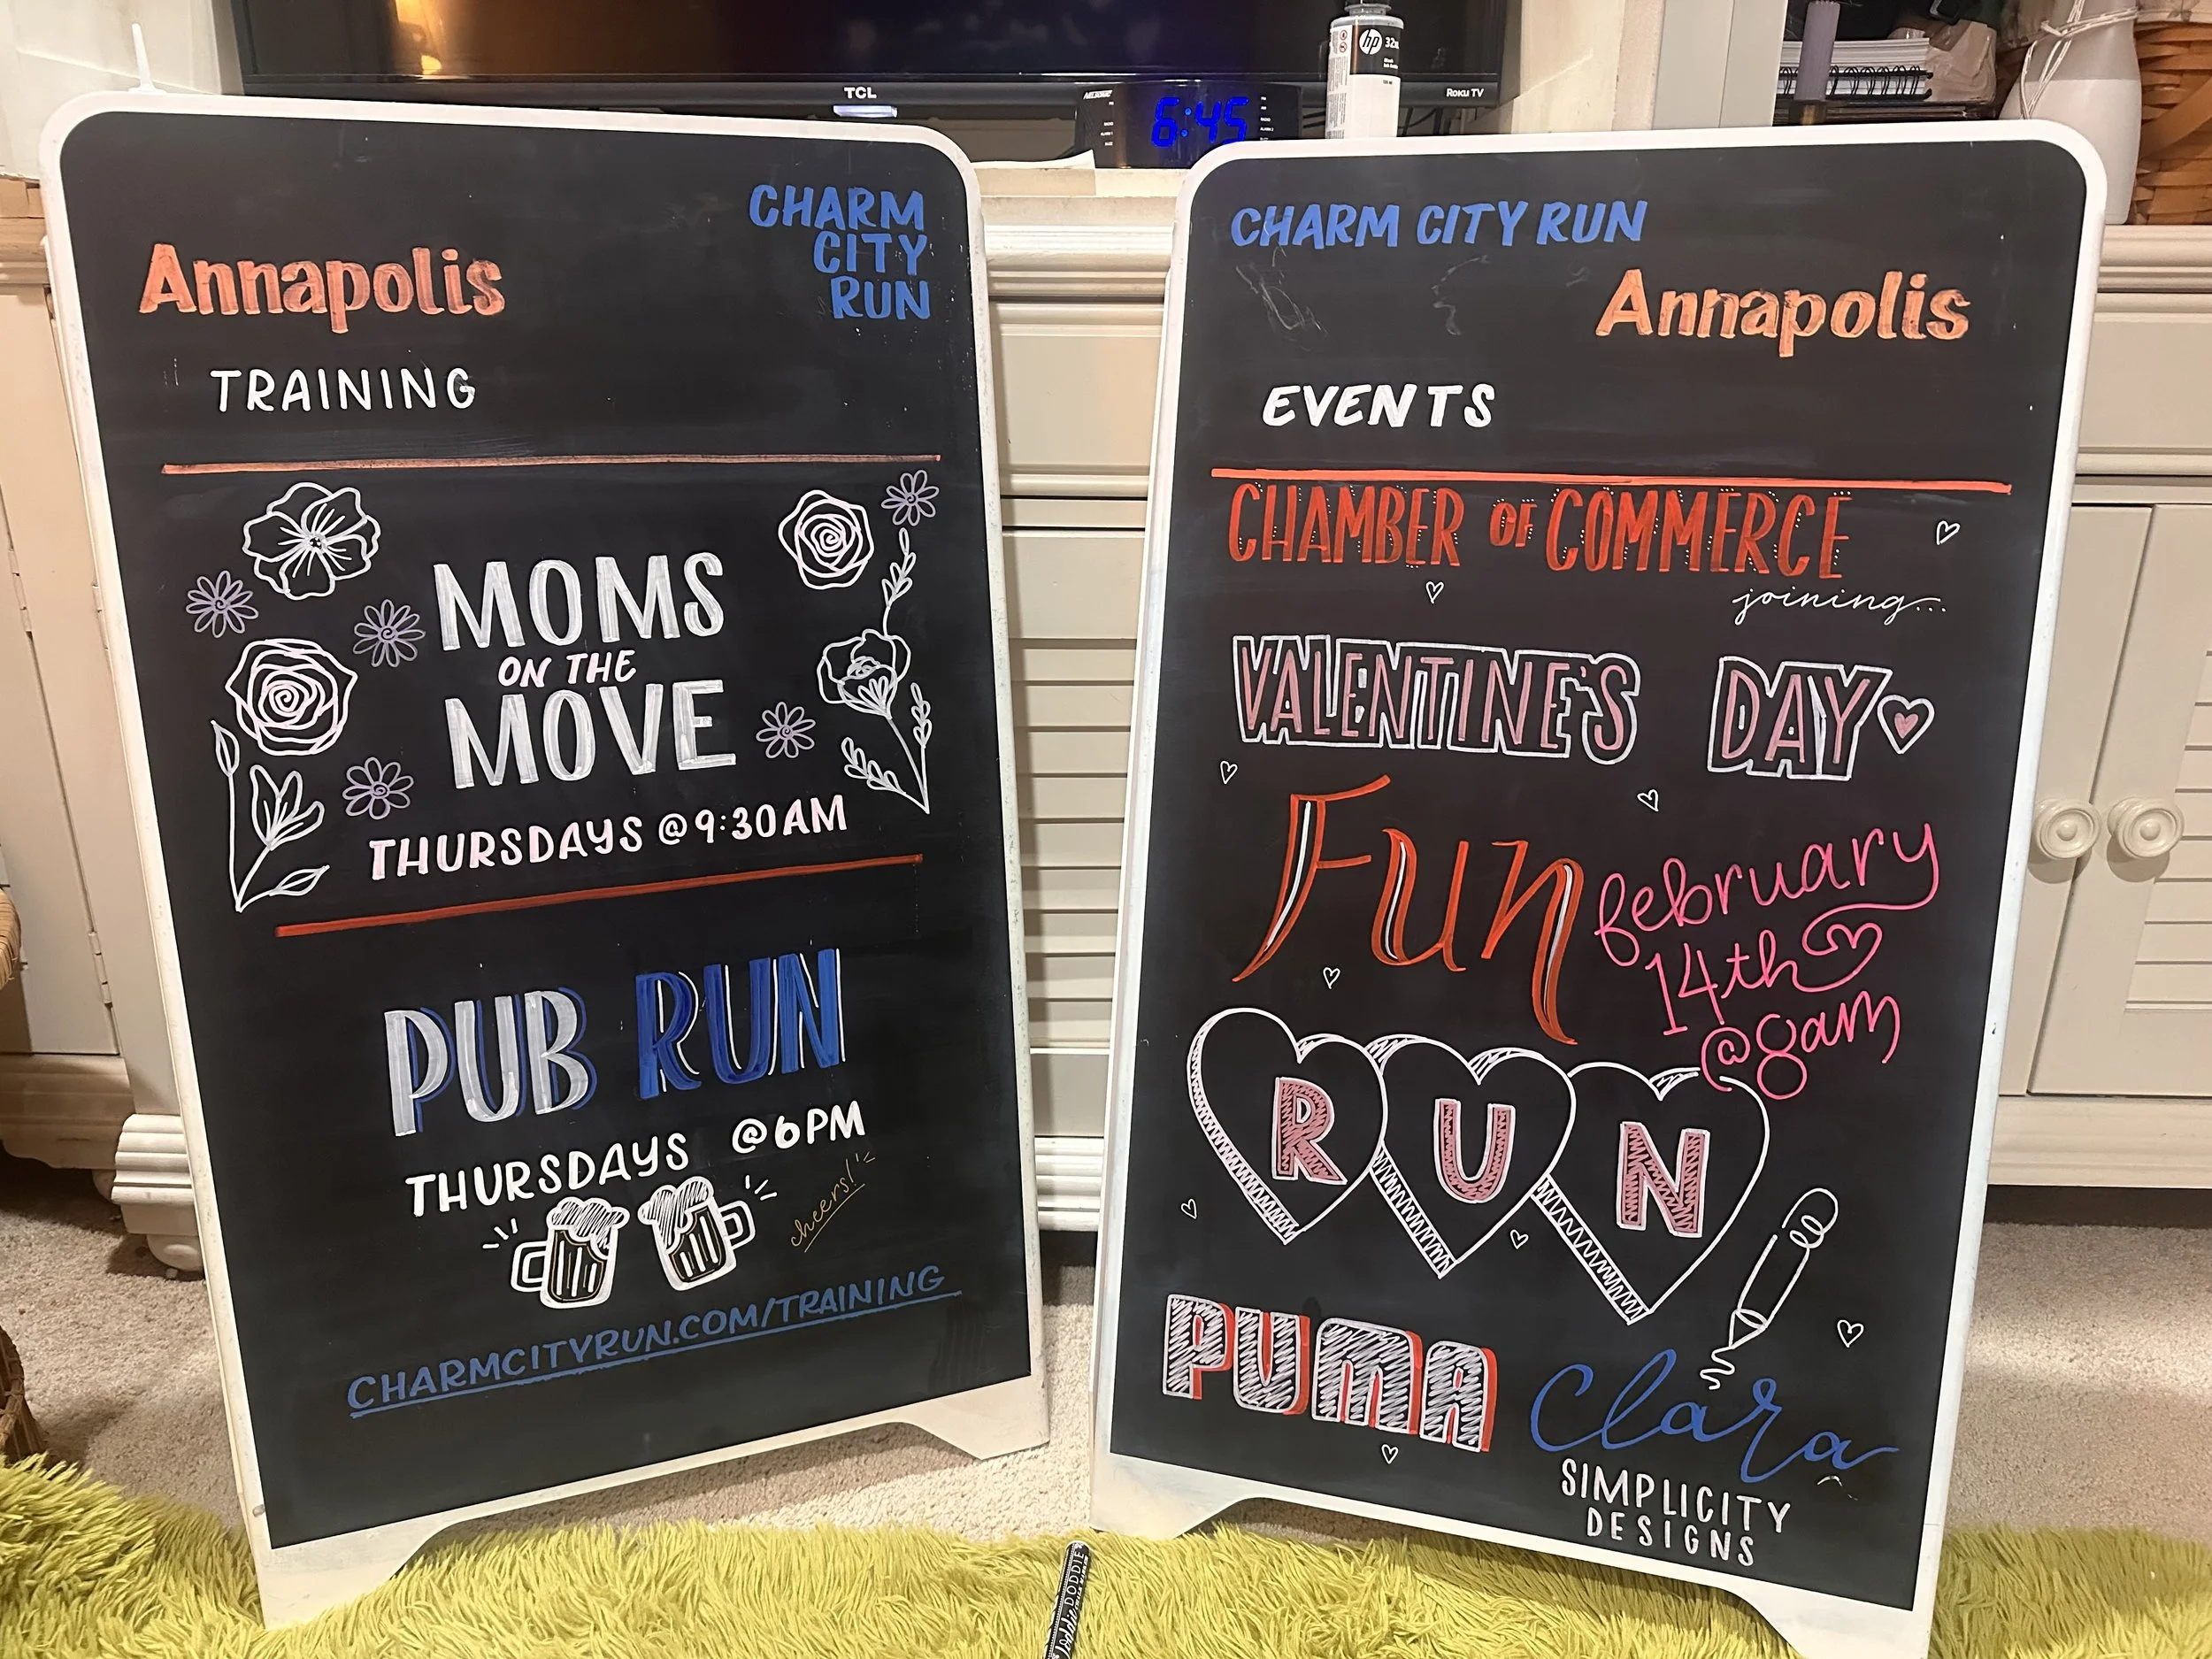 TCL
Roku TV
hp 32XL
6:45
Annapolis
CHARM
CITY
RUN
TRAINING
MOMS
ON THE
MOVE
THURSDAYS @ 9:30AM
PUB RUN
THURSDAYS @6PM
cheers!
CHARMCITYRUN.COM/TRAINING
CHARM CITY RUN
Annapolis
EVENTS
CHAMBER OF COMMERCE
joining...
VALENTINE'S DAY
Fun
february
14th
@8am
RUN
PUMA
Clara
SIMPLICITY
DESIGNS